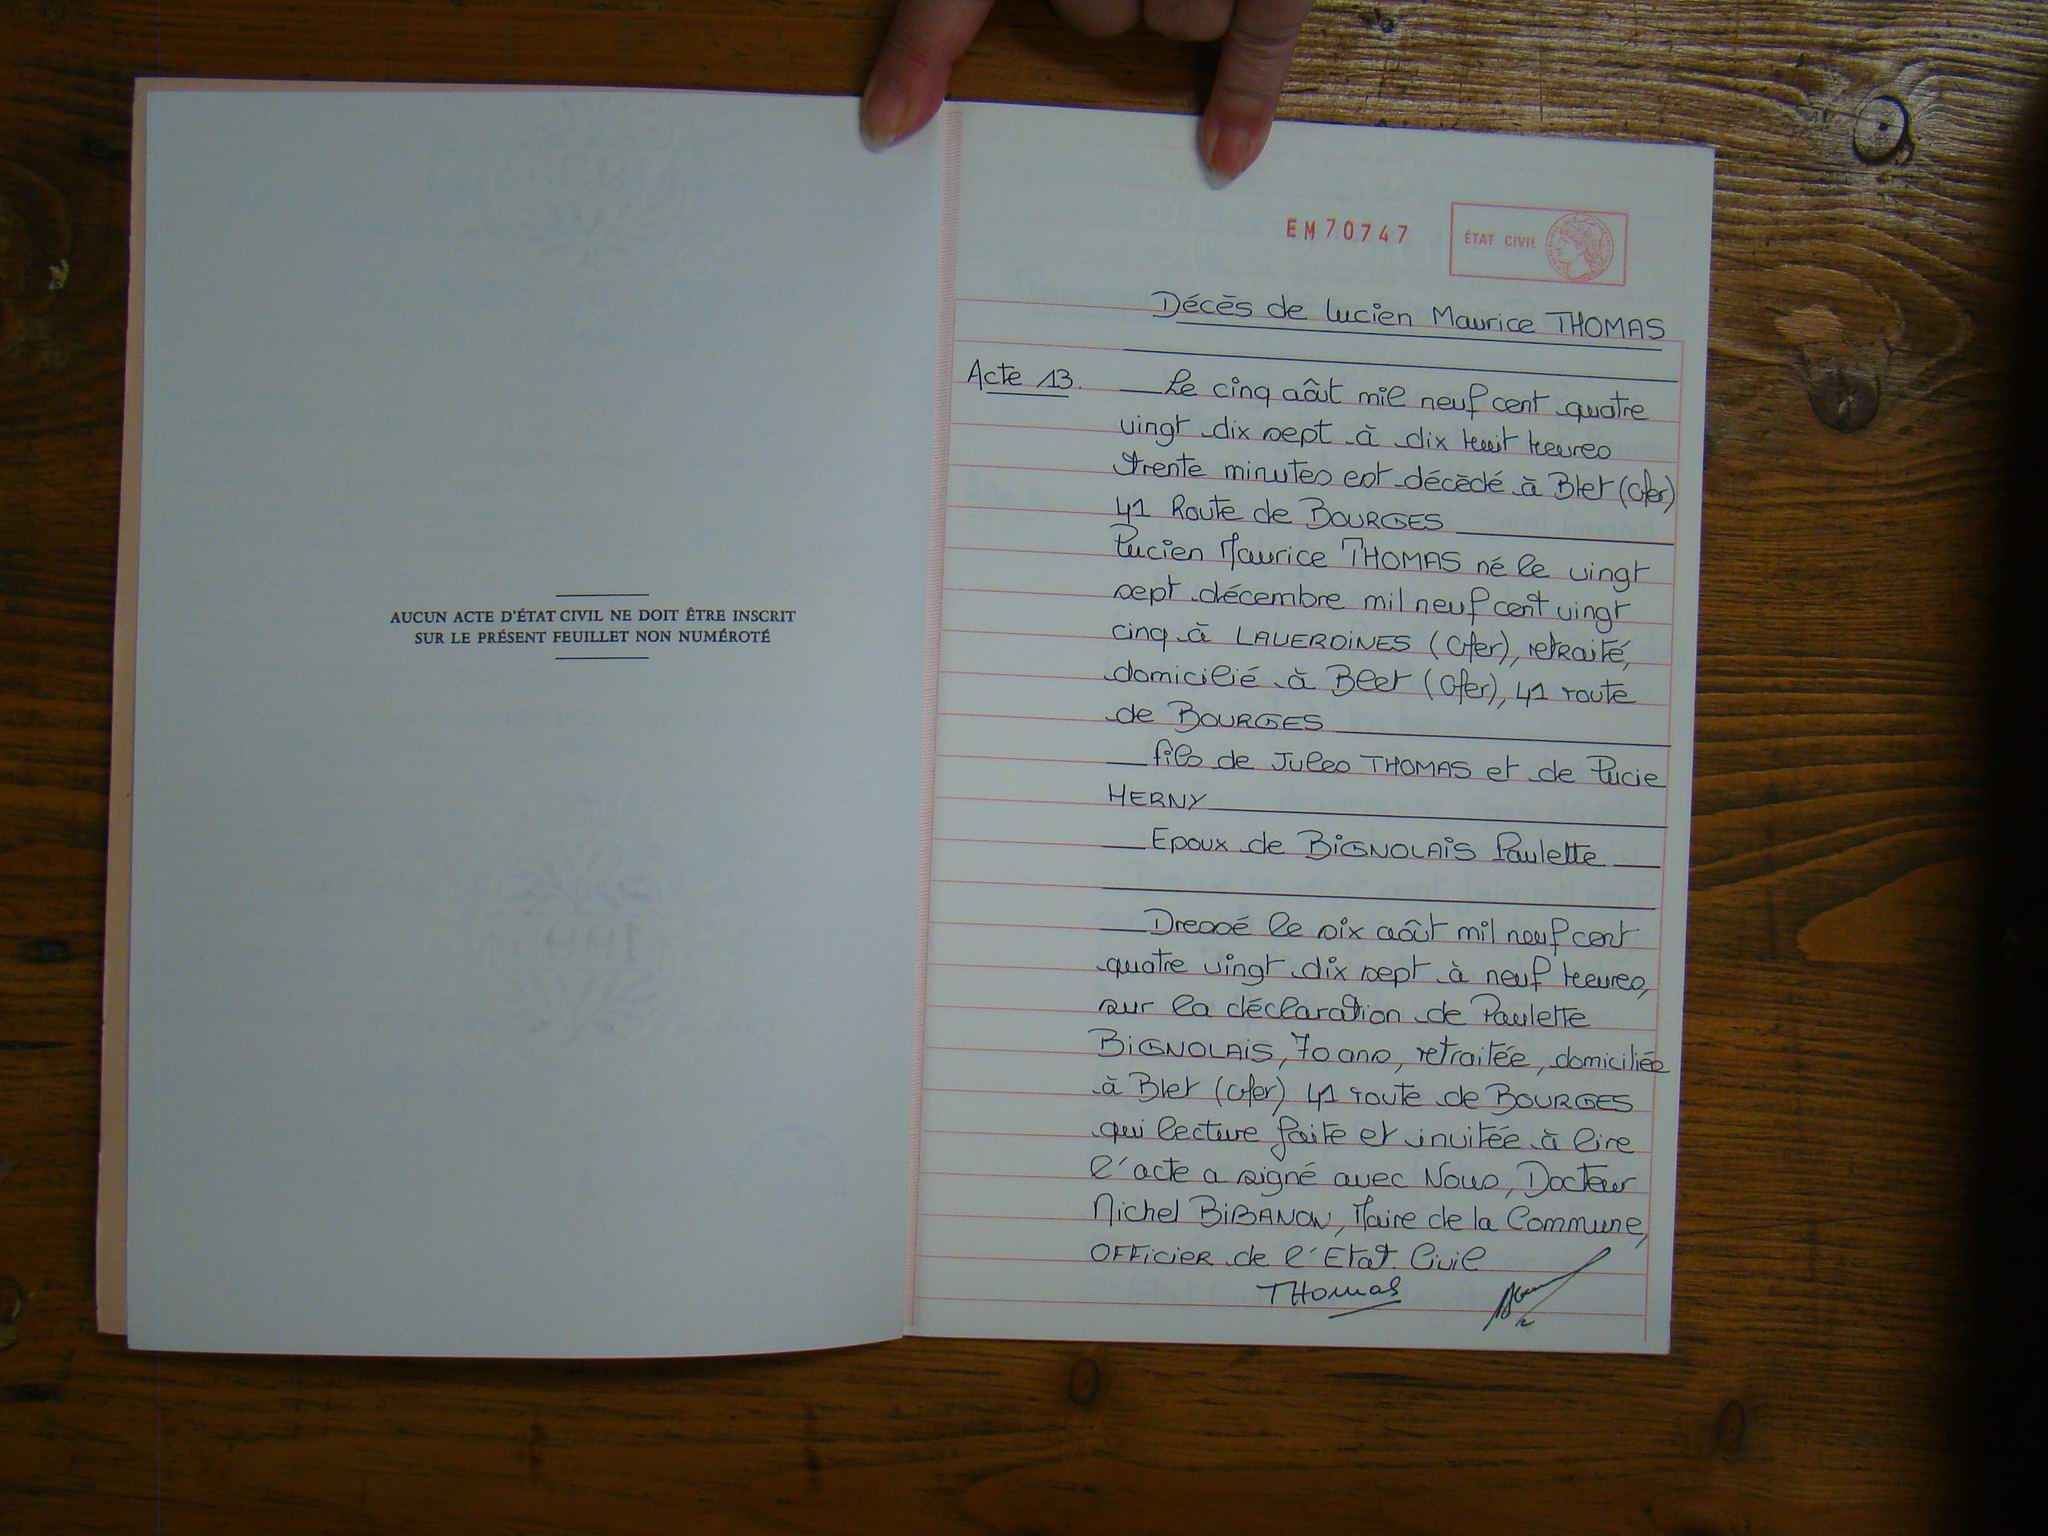 AUCUN ACTE D'ÉTAT CIVIL NE DOIT ÊTRE INSCRIT
SUR LE PRÉSENT FEUILLET NON NUMÉROTÉ
EM70747
ÉTAT CIVIL
Décès de Lucien Maurice THOMAS
Acte 13.
Le cinq août mil neuf cent quatre
vingt dix sept à dix huit heures
trente minutes est décédé à Blet (Cher)
41 Route de BOURGES
Lucien Maurice THOMAS né le vingt
sept décembre mil neuf cent vingt
cinq à LAVERDINES (Cher), retraité,
domicilié à Blet (Cher), 41 route
de BOURGES
fils de Jules THOMAS et de Lucie
HERNY
Epoux de BIGNOLAIS Paulette
Dressé le six août mil neuf cent
quatre vingt dix sept à neuf heures,
sur la déclaration de Paulette
BIGNOLAIS, 70 ans, retraitée, domiciliée
à Blet (Cher) 41 route de BOURGES
qui lecture faite et invitée à lire
l'acte a signé avec Nous, Docteur
Michel BIBANON, Maire de la Commune,
OFFICIER de l'Etat Civil
THomas